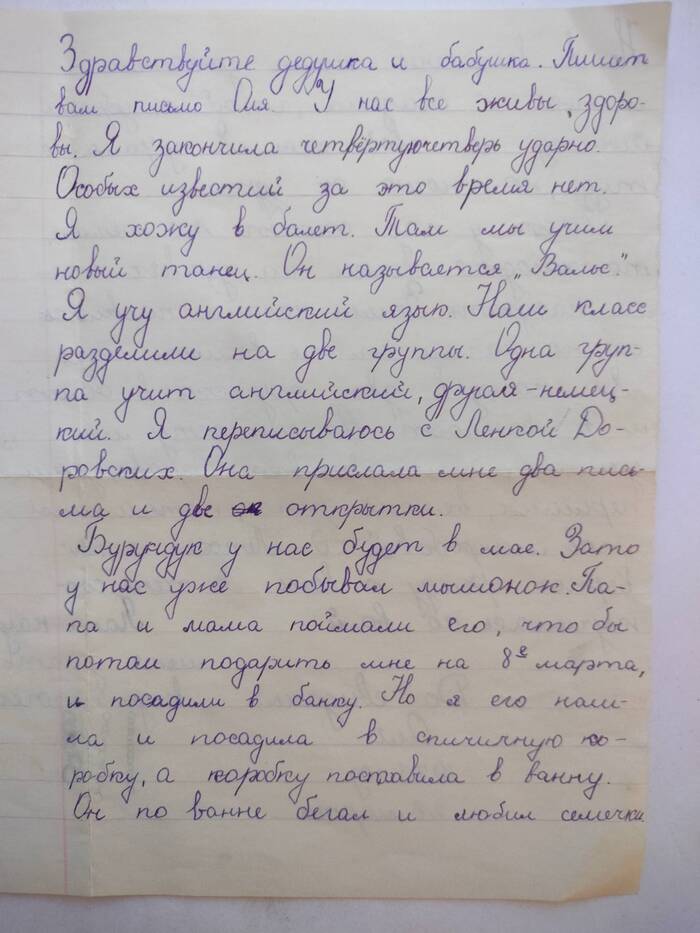 Здравствуйте дедушка и бабушка. Пишет
вам письмо Оля. У нас все живы, здоро-
вы. Я закончила четвёртуючетверь ударно.
Особых известий за это время нет.
Я хожу в балет. Там мы учим
новый танец. Он называется „Вальс".
Я учу английский язык. Наш класс
разделили на две группы. Одна груп-
па учит английский, другая-немец-
кий. Я переписываюсь с Ленкой До-
ровских. Она прислала мне два пись-
ма и две открытки.
Бурундук у нас будет в мае. Зато
у нас уже побывал мышонок. Па-
па и мама поймали его, что бы
потом подарить мне на 8е марта,
и посадили в банку. Но я его наш-
ла и посадила в спичичную ко-
робку, а коробку поставила в ванну.
Он по ванне бегал и любил семечки